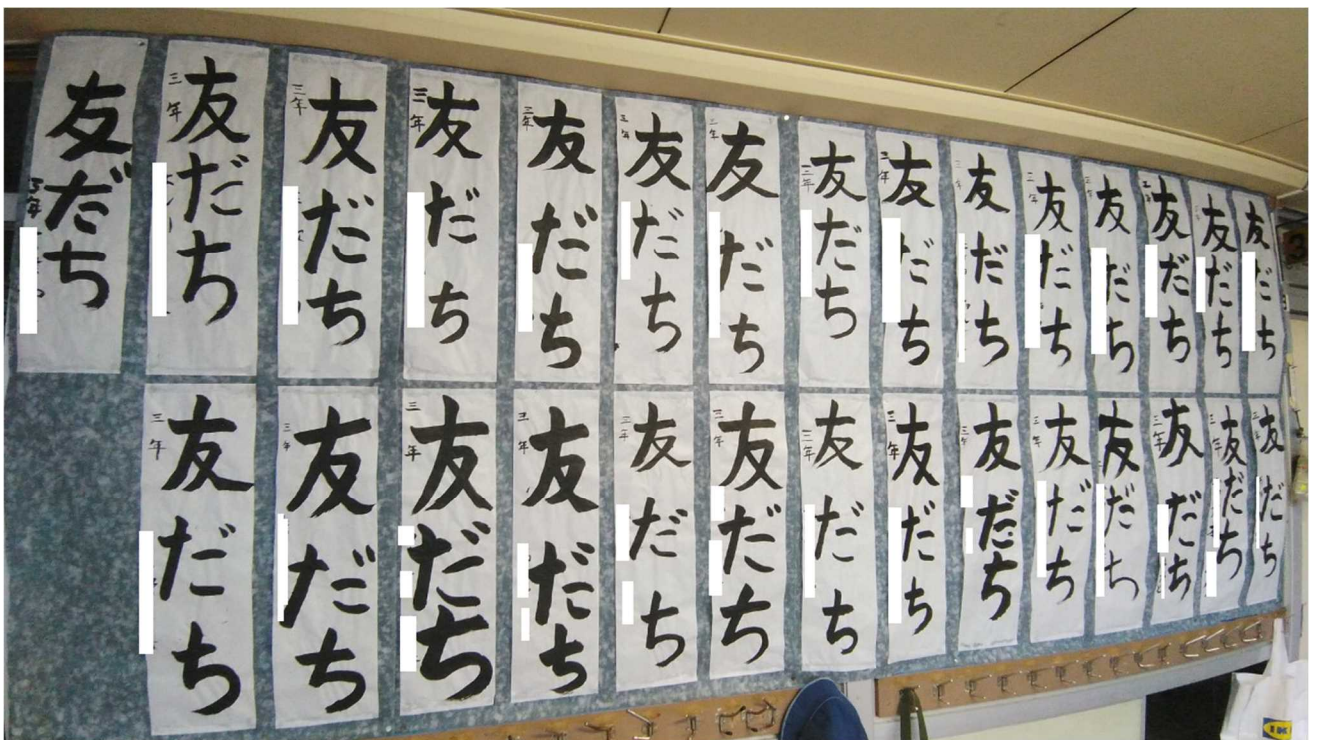 友だち
友だち
友だち
三年
友だち
友だち
三年
友だち
三年
友だち
三年
友だち
三年
友だち
三年
友だち
三年
友だち
三年
友だち
三年
友だち
三年
友だち
三年
友だち
三年
友だち
友だち
三年
友だち
三年
友だち
友だち
三年
友だち
三年
友だち
三年
友だち
三年
友だち
三年
友だち
三年
友だち
三年
友だち
三年
友だち
三年
友だち
三年
3
IK